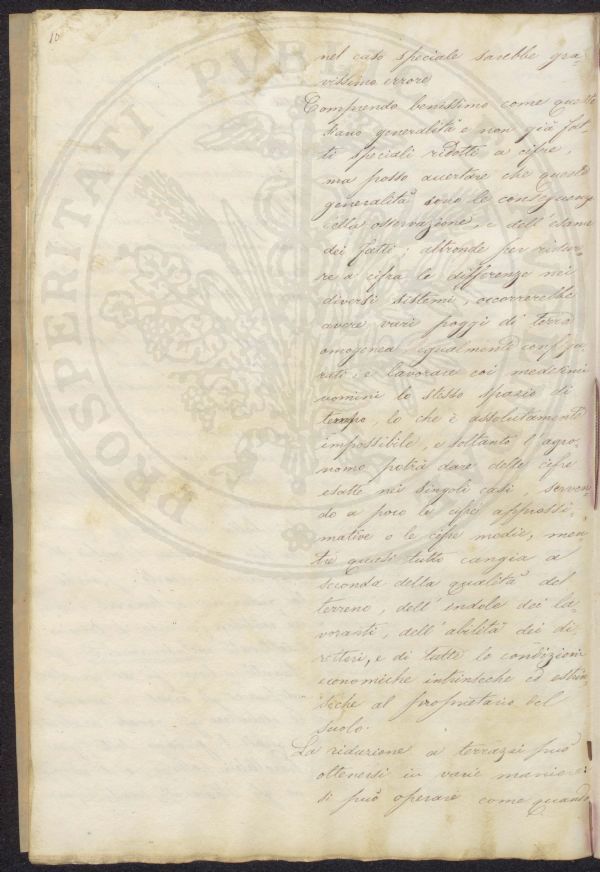 10
nel caso speciale sarebbe gra-
vissimo errore
Comprendo benissimo come queste
siano generalità e non già fat-
ti speciali ridotti a cifre,
ma posso accertare che queste
generalità sono le conseguenze
della osservazione, e dell'esame
dei fatti; altronde per ridur-
re a cifra le differenze nei
diversi sistemi, occorrerebbe
avere varii poggi di terra
omogenea, egualmente configu-
rati, e lavorare coi medesimi
uomini lo stesso spazio di
tempo, lo che è assolutamente
impossibile, e soltanto l'agro-
nomo potrà dare delle cifre
esatte nei singoli casi, serven-
do a poco le cifre approssi-
mative o le cifre medie, men-
tre quasi tutto cangia a
seconda della qualità del
terreno, dell'indole dei la-
voranti, dell'abilità dei di-
rettori, e di tutte le condizioni
economiche intrinseche ed estrin-
seche al proprietario del
suolo.
La riduzione a terrazzi può
ottenersi in varie maniere:
si può operare come quando
PROSPERITATI PVBL